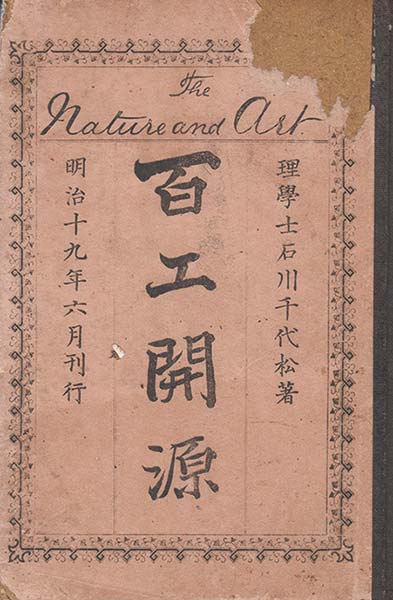 The
Nature and Art.
理學士石川千代松著
百工開源
明治十九年六月刊行